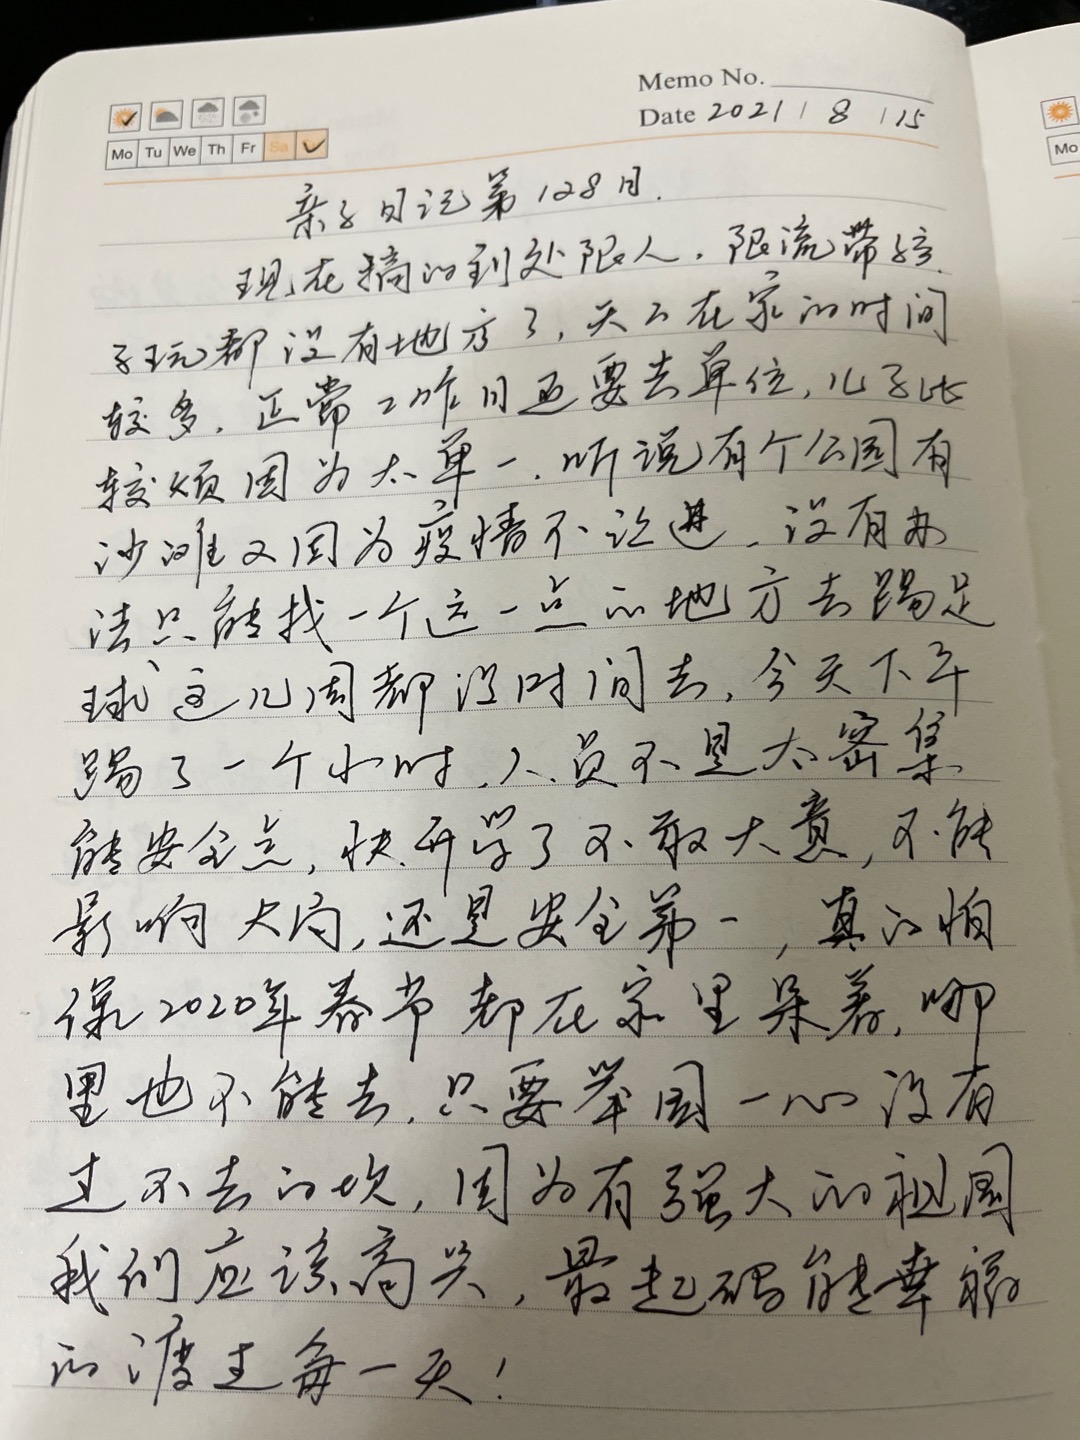 Memo No.
Date 2021 / 8 / 15
Mo Tu We Th Fr Sa
Mo
亲子日记第128日.
现在搞的到处限人，限流带孩
子玩都没有地方了，天天在家的时间
较多，正常工作日还要去单位，儿子比
较烦因为太单一，听说有个公园有
沙滩又因为疫情不让进，没有办
法只能找一个远一点的地方去踢足
球，这几周都没时间去，今天下午
踢了一个小时，人员不是太密集
能安全点，快开学了不敢大意，不能
影响大局，还是安全第一，真的怕
像2020年春节都在家里呆着，哪
里也不能去，只要举国一心没有
过不去的坎，因为有强大的祖国
我们应该高兴，最起码能幸福
的渡过每一天！